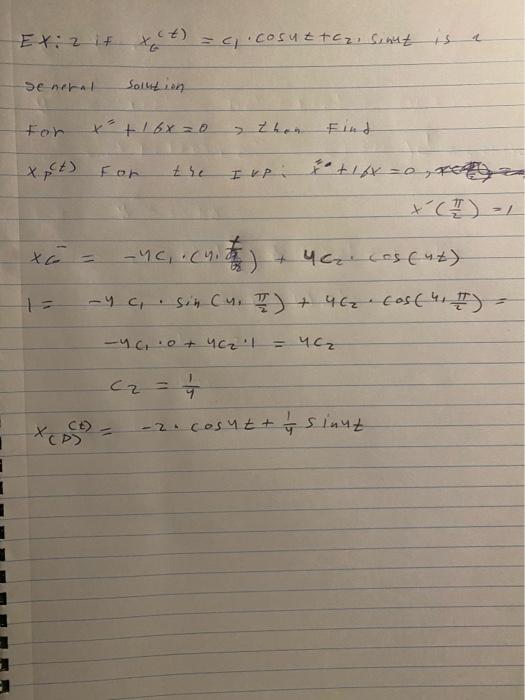 EX: 2 if x_G(t) = c₁ · cos4t + c₂ · sin4t is a
general solution
For x" + 16x = 0, then Find
x_p(t) For the IVP: x" + 16x = 0,
x'(π/2) = 1
x_G' = -4c₁ · (4 · t) + 4c₂ · cos(4t)
1 = -4c₁ · sin(4 · π/2) + 4c₂ · cos(4 · π/2) =
-4c₁ · 0 + 4c₂ · 1 = 4c₂
c₂ = 1/4
x_(p)(t) = -2 · cos4t + 1/4 sin4t